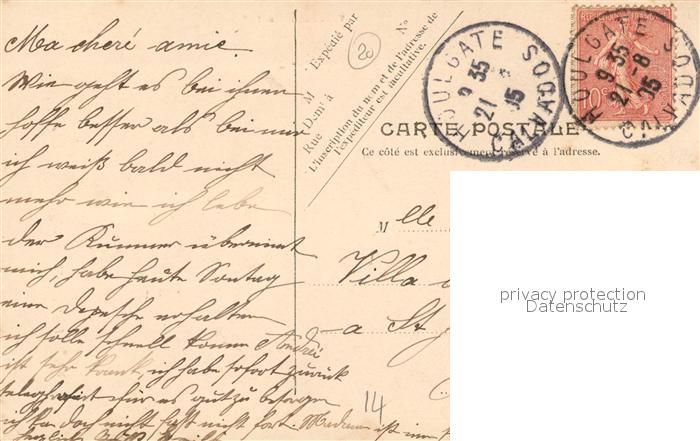 Ma cheré amié.
Wie geht es bei ihnen
hoffe besser als bei mir
ich weiß bald nicht
mehr wie ich lebe
der Kummer übernimt
mich, habe heute Sontag
eine Depesche erhalten
ich solle schnell komen André
ist sehr krank ich habe sofort zurück
telegrafirt für es gut zu besorgen
ich kan doch nicht fort Madame ist
M Expédié par
D-nt à
Rue
N°
L'inscription du nom et de l'adresse de
l'expéditeur est facultative.
20
HOULGATE
9 35
21
15
CALVADOS
HOULGATE
9 35
21 -8
15
CALVADOS
10
CARTE POSTALE
Ce côté est exclusivement réservé à l'adresse.
M elle
Villa
a St
14
privacy protection
Datenschutz